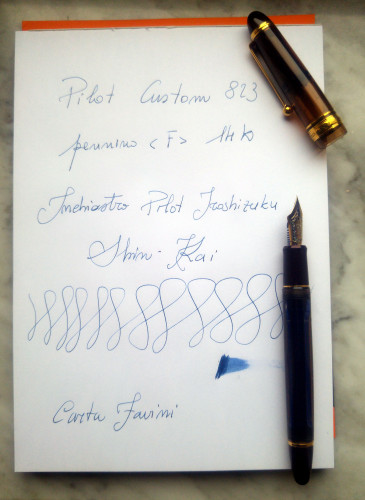 Pilot Custom 823
pennino <F> 14 k
Inchiostro Pilot Iroshizuku
Shin-Kai
Carta Favini